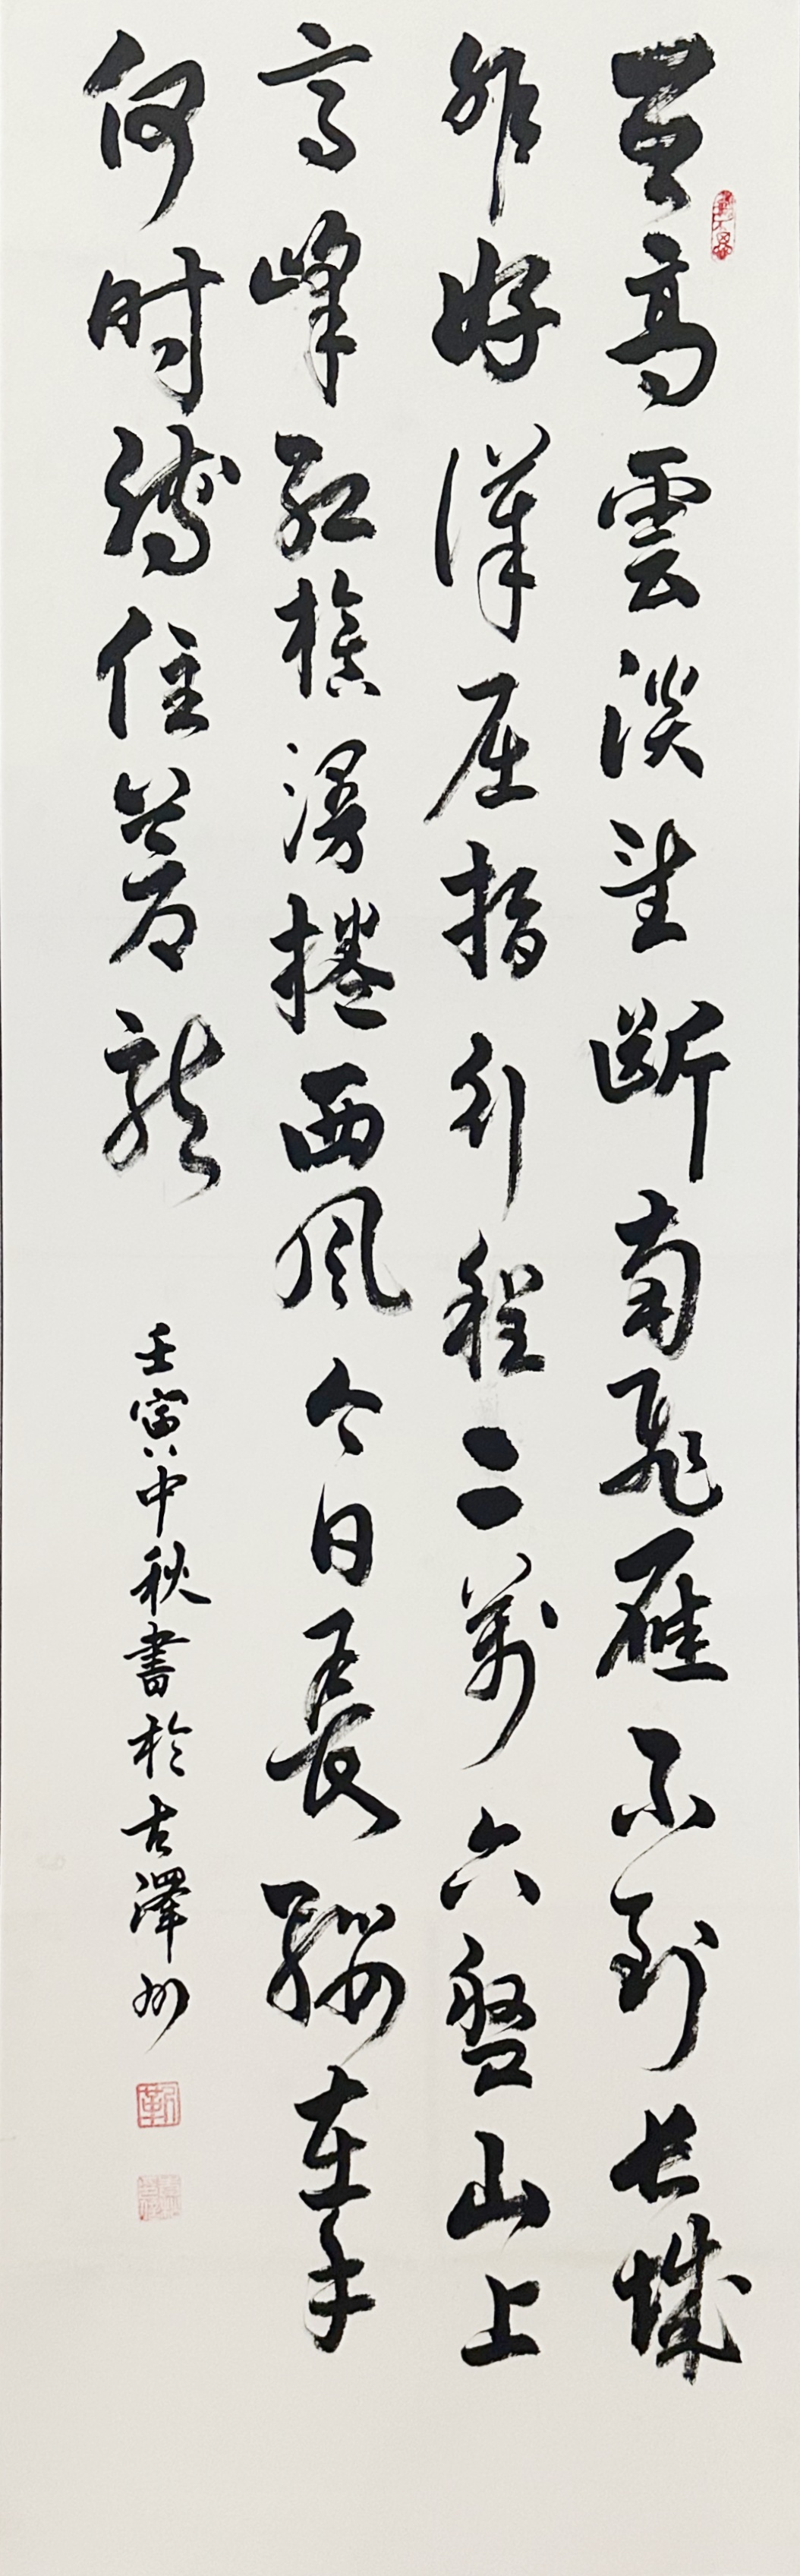 天高雲淡望断南飛雁不到长城
非好漢屈指行程二萬六盤山上
高峰紅旗漫捲西風今日長纓在手
何时縛住蒼龍
壬寅中秋書於古澤州